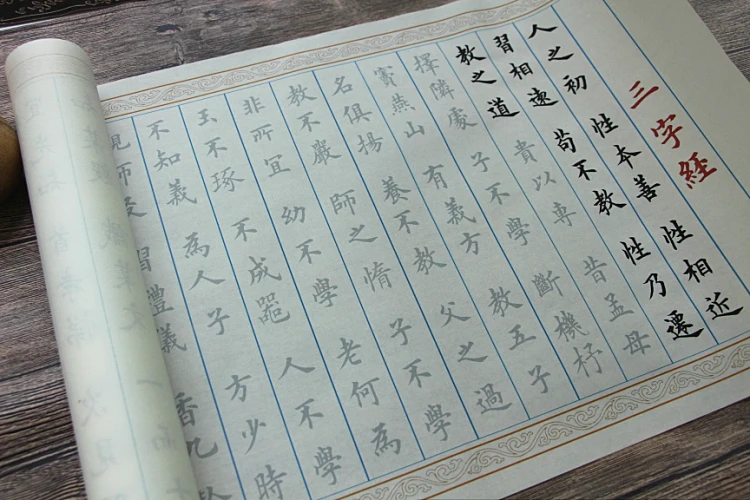 三字經
人之初 性本善 性相近
習相遠 苟不教 性乃遷
教之道 貴以專 昔孟母
擇隣處 子不學 斷機杼
竇燕山 有義方 教五子
名俱揚 養不教 父之過
教不嚴 師之惰 子不學
非所宜 幼不學 老何為
玉不琢 不成器 人不學
不知義 為人子 方少時
師友 習禮義 香九